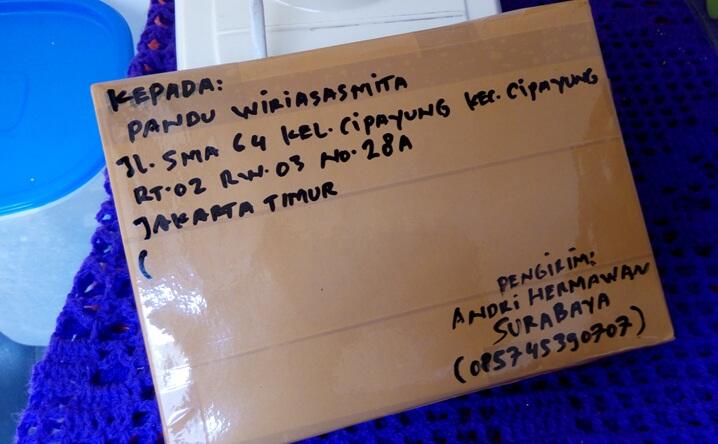 KEPADA:
PANDU WIRIASASMITA
JL. SMA 64 KEL. CIPAYUNG KEC. CIPAYUNG
RT.02 RW.03 NO.28A
JAKARTA TIMUR
(
PENGIRIM:
ANDRI HERMAWAN
SURABAYA
(085745390707)